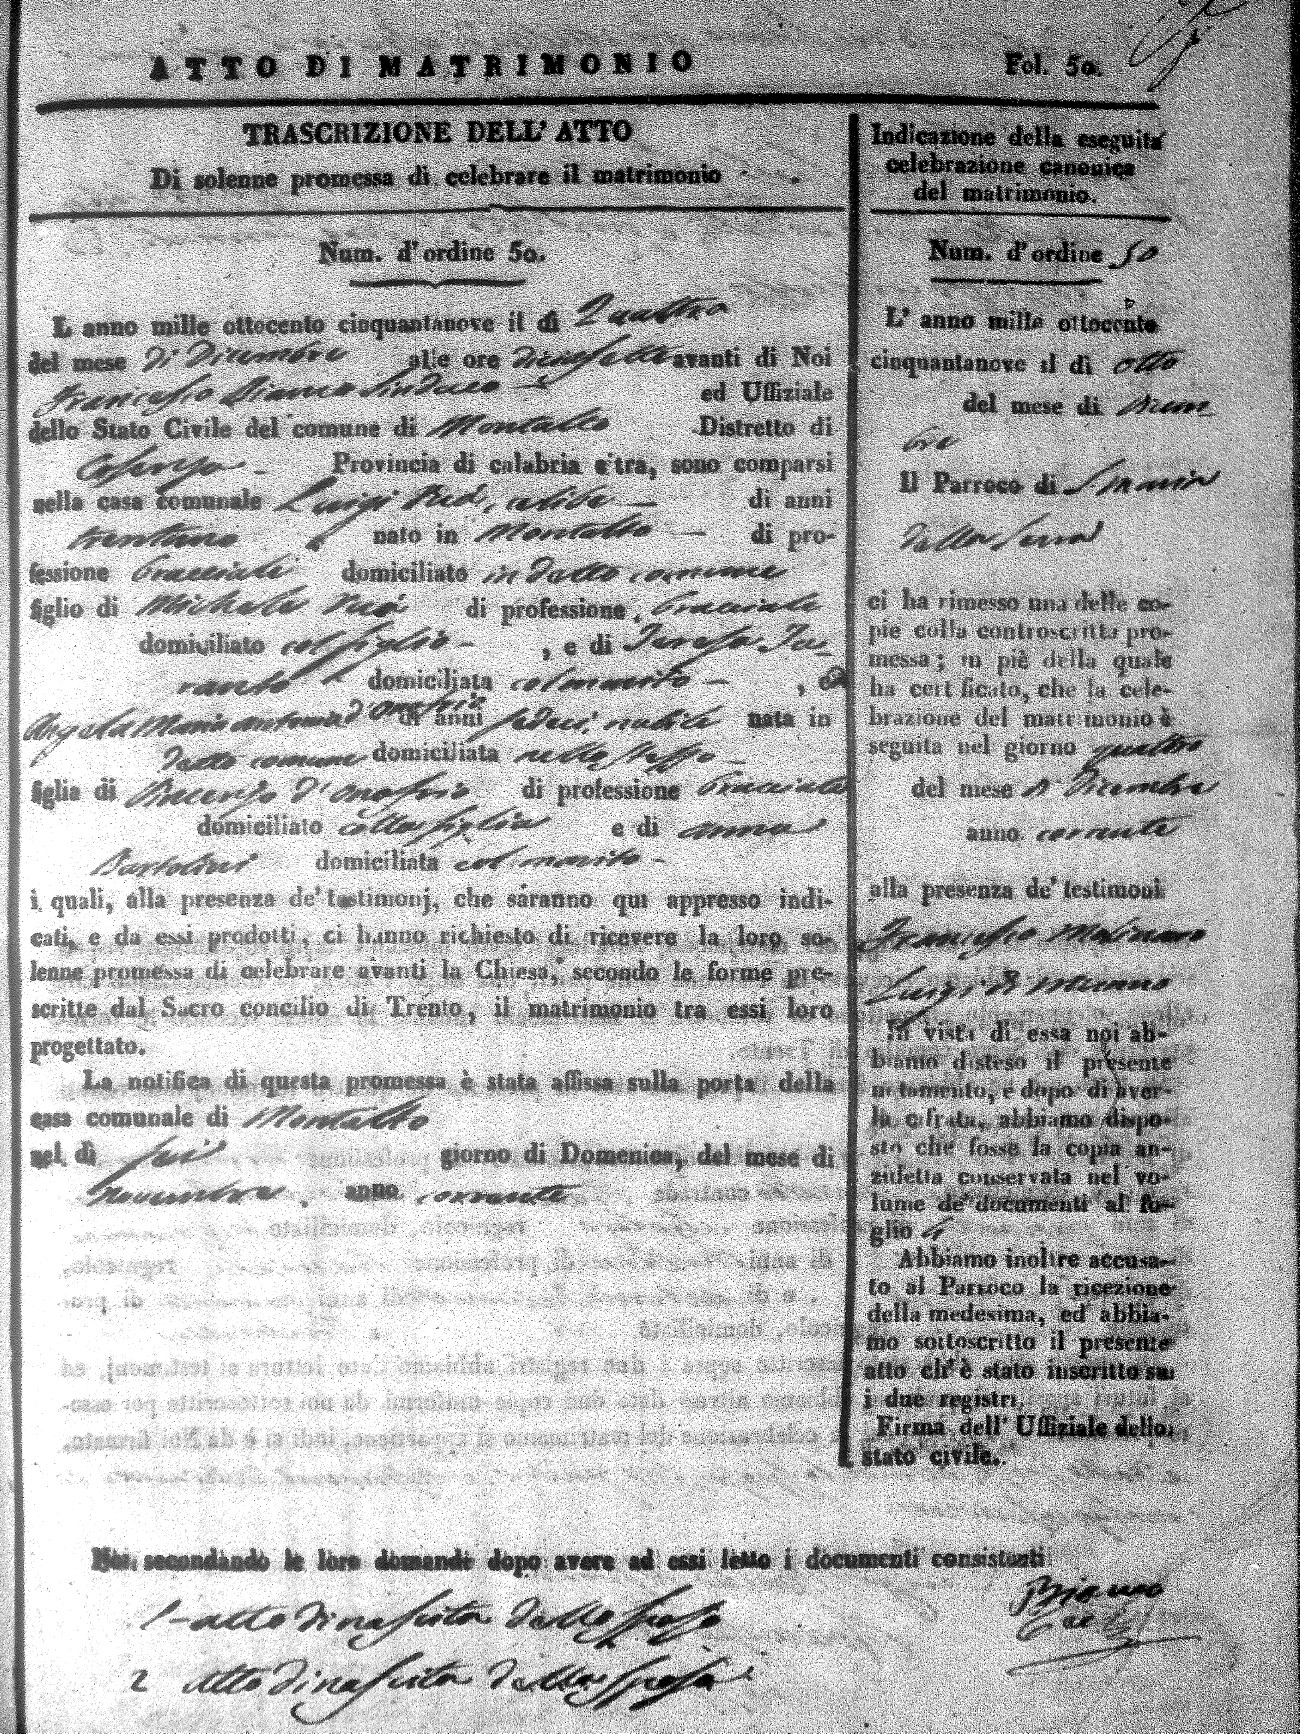 ATTO DI MATRIMONIO
Fol. 50.
TRASCRIZIONE DELL' ATTO
Di solenne promessa di celebrare il matrimonio
Num. d'ordine 50.
L anno mille ottocento cinquantanove il dì Quattro
del mese di Dicembre alle ore diciasette avanti di Noi
Francesco Bianco Sindaco ed Uffiziale
dello Stato Civile del comune di Montalto Distretto di
Cosenza Provincia di calabria citra, sono comparsi
nella casa comunale Luigi celibe di anni
trentuno nato in Montalto di pro-
fessione bracciale domiciliato in detto comune
figlio di Michele di professione bracciale
domiciliato col figlio , e di Teresa
domiciliata col marito , e
Angela Maria Antonia d'Onofrio di anni sedici, nubile nata in
detto comune domiciliata nello stesso
figlia di Vincenzo d'Onofrio di professione bracciale
domiciliato colla figlia e di Anna
domiciliata col marito
i quali, alla presenza de' testimonj, che saranno qui appresso indi-
cati, e da essi prodotti, ci hanno richiesto di ricevere la loro so-
lenne promessa di celebrare avanti la Chiesa, secondo le forme pre-
scritte dal Sacro concilio di Trento, il matrimonio tra essi loro
progettato.
La notifica di questa promessa è stata affissa sulla porta della
casa comunale di Montalto
nel dì sei giorno di Domenica, del mese di
Novembre anno corrente
Indicazione della eseguita
celebrazione canonica
del matrimonio.
Num. d'ordine 50
L' anno mille ottocento
cinquantanove il dì otto
del mese di Dicem
bre
Il Parroco di S. Maria
della Serra
ci ha rimesso una delle co-
pie colla controscritta pro-
messa; in piè della quale
ha certificato, che la cele-
brazione del matrimonio è
seguita nel giorno quattro
del mese di Dicembre
anno corrente
alla presenza de' testimoni
Francesco Molinaro
Luigi
In vista di essa noi ab-
biamo disteso il presente
notamento, e dopo di aver-
la cifrata, abbiamo dispo-
sto che fosse la copia an-
zidetta conservata nel vo-
lume de' documenti al fo-
glio
Abbiamo inoltre accusa-
to al Parroco la ricezione
della medesima, ed abbia-
mo sottoscritto il presente
atto ch' è stato inscritto su
i due registri.
Firma dell' Uffiziale dello
stato civile.
Noi secondando le loro domande dopo avere ad essi letto i documenti consistenti
1- atto di nascita dello sposo
2 Atto di nascita della sposa
Bianco